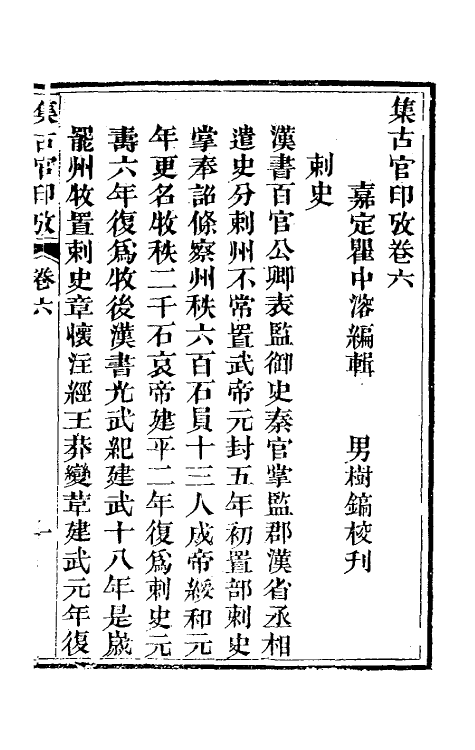 集古官印攷卷六
嘉定瞿中溶編輯　男樹鎬校刊
刺史
漢書百官公卿表監御史秦官掌監郡漢省丞相
遣史分刺州不常置武帝元封五年初置部刺史
掌奉詔條察州秩六百石員十三人成帝綏和元
年更名牧秩二千石哀帝建平二年復爲刺史元
壽六年復爲牧後漢書光武紀建武十八年是歲
罷州牧置刺史章懷注經王莽變革建武元年復
集古官印攷　卷六　一